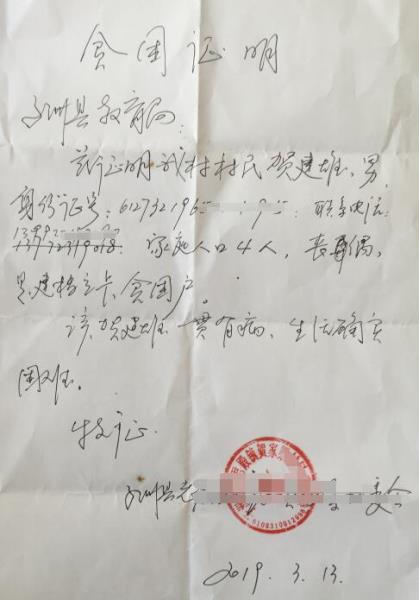 贫困证明
子洲县教育局:
兹证明我村村民贺建雄,男,
身份证号:61273219 联系电话:
13772319018. 家庭人口4人, 丧偶,
是建档立卡贫困户。
该贺建雄一贯有病,生活确实
困难。
特证
子洲县老 委会
2019.3.13.